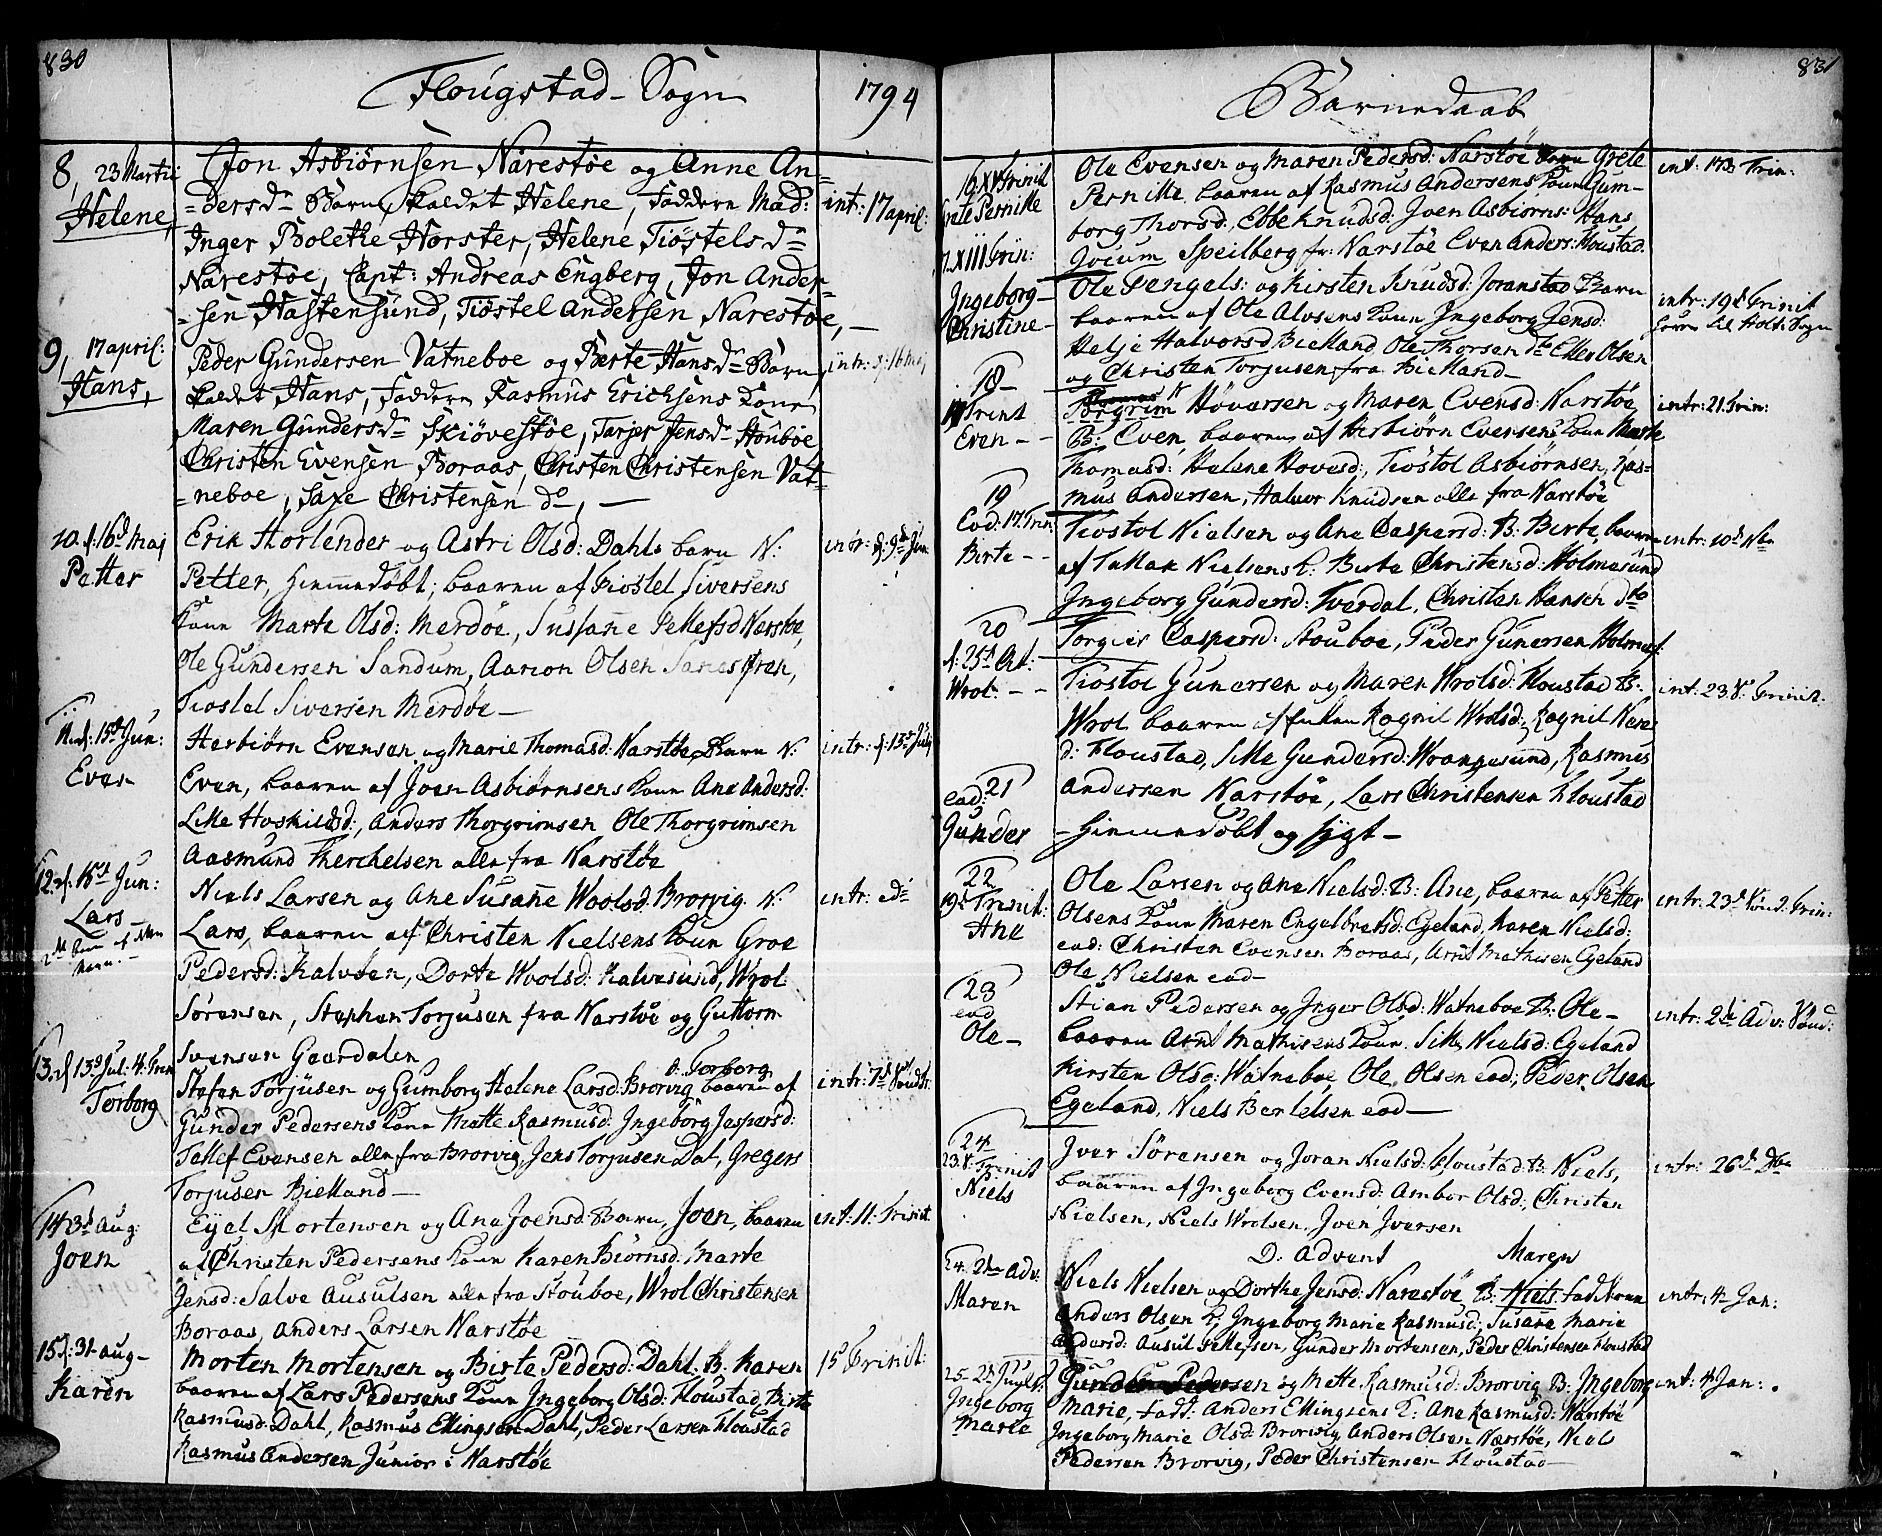 830
Flougstad Sogn
1794
8, 23 Martii
Helene,
Jon Asbiørnsen Narestøe og Anne An=
=dersd- Barn, kaldet Helene, Faddere Mad:
Inger Bolethe Horster, Helene Tiøstelsd-
Narestøe, Capt: Andreas Engberg, Jon Ander-
-sen Hastensund, Tiøstel Andersen Narestøe, —
int: 17 april:
9, 17 april:
Hans,
Peder Gundersen Vatneboe og Berte Hansd- Barn,
kaldet Hans, Faddere Rasmus Erichsens Kone
Maren Gundersd- Skiøvestøe, Tarjer Jensd- Stouboe
Christen Evensen Boraas, Christen Christensen Vat=
=neboe, Saxe Christensen do, —
intr: d: 16 Maj
10. d: 16d Maj
Petter
Erik Horlender og Astri Olsd: Dahls barn N:
Petter, hiemmedøbt; baaren af Tiostel Siversens
Kone Marte Olsd: Merdøe, Susanne Tellefsd Narstøe,
Ole Gundersen Sandum, Aarion Olsen
Tiostel Siversen Merdøe —
d: 9d Jun
11. d: 15d Jun:
Even
Herbiørn Evensen og Marie Thomasd: Narstøe Barn N:
Even, baaren af Joen Asbiørnsens Kone Ane Andersd:
Lille Hoskildsd:, Anders Thorgrimsen Ole Thorgrimsen
Aasmund Therchelsen alle fra Narstøe
intr: d: 13d July
12. d: 15d Jun:
Lars —
Niels Larsen og Ane Susanne Woolsd: Brorvig N:
Lars, baaren af Christen Nielsens Kone Groe
Pedersd: Kalvøen, Dorte Woolsd: Kalvesund, Wrol
Sørensen, Stephen Torjusen fra Narstøe og Guttorm
Svensen Gaardalen
intr: ed-
13. d 13d Jul. 4. Trin
Torborg
B. Torborg
Stefan Torjusen og Gumborg Helene Larsd: Brorvig baaren af
Gunder Pedersens Kone Mette Rasmusd: Ingeborg Jaspersd:
Tallef Evensen alle fra Brorvig, Jens Torjusen Dal, Gregers
Torjusen Bielland —
14 3d Aug:
Joen
Eyel Mortensen og Ane Joensd: Barn, Joen, baaren
af Christen Pedersens Kone Karen Biørnsd: Marte
Jensd: Salve Ausulsen alle fra Stouboe, Wrol Christensen
Boraas, Anders Larsen Narstøe
int: 11. Trinit.
15 d: 31 aug—
Karen
Morten Mortensen og Birte Pedersd: Dahl. B. Karen
baaren af Lars Pedersens Kone Ingeborg Olsd: Floustad, Birte
Rasmusd: Dahl, Rasmus Ellingsen Dahl, Peder Larsen Floustad
Rasmus Andersen Junior i Narstøe
15 Trinit:
831
Barnedaab
16 XV Trinit
Grete Pernille
Ole Evensen og Maren Pedersd: Narstøe Barn Grete
Pernille baaren af Rasmus Andersens Kone Gum-
borg Thorsd, Ebbe Knudsd: Joen Asbiørns: Hans
Jocum Speilberg fr: Narstøe Even Anders: Floustad.
int: 17d Trin:
17. XIII Trin:
Ingeborg—
Christine—
Ole Tengels: og Kirsten Knudsd: Joranstad Barn
baaren af Ole Alvsens Kone Ingeborg Jensd:
Helje Halvorsd Bielland Ole Thorsen do Ellev Olsen
og Christen Torjusen fra Bielland—
intr: 19d Trinit
18—
17 Trinit
Even — -
Torgrim Hoversen og Maren Evensd: Narstøe
B: Even, baaren af Herbiørn Evensens Kone Marte
Thomasd: Helene Hovesd:, Tiøstol Asbiørnsen, Ras-
mus Andersen, Halvor Knudsen alle fra Narstøe
intr: 21. Trin:
19
Eod: 17. Trin:
Birte - -
Tiostol Nielsen og Ane Caspersd: B: Birte, baaren
af Tallak Nielsens K: Birte Christensd: Holmesund
Ingeborg Gundersd: Tverdal, Christen Hansen dto
Torgier Caspersd: Stouboe, Peder Gunersen Holmes:
intr: 10d
20
d: 25d Oct:
Wrol: - -
Tiostol Gunersen og Maren Wrolsd: Floustad B:
Wrol baaren af Enken Ragnil Wrolsd: Ragnil Kare
d: Floustad, Sille Gundersd: Wrangesund, Rasmus
Andersen Narstøe, Lars Christensen Floustad
int: 23. S. Trinit:
21
eod:
Gunder
— Hiemmedøbt og sygt —
22
19d Trinit:
Ane
Ole Larsen og Ane Nielsd: B: Ane, baaren af Petter
Olsens Kone Maren Engelbretsd: Egeland, Karen Nielsd:
eod: Christen Evensen Boraas, Arnt Mathisen Egeland
Ole Nielsen eod—
intr: 23d Sønd. Trin:
23
eod
Ole—
Stian Pedersen og Inger Olsd: Watneboe B: Ole—
baaren Arnt Mathisens Kone Sille Nielsd: Egeland
Kirsten Olsd: Watneboe, Ole Olsen eod:, Peder Olsen
Egeland, Niels Bertelsen eod—
intr: 2de Adv: Sønd:
24
23. S. Trinit
Niels
Iver Sørensen og Joran Nielsd: Floustad B: Niels,
baaren af Ingeborg Evensd: Ambor Olsd: Christen
Nielsen, Niels Wrolsen, Joen Iversen
intr: 26d Xbr
24. 2den Adv.
Maren
D: Advent Maren
Niels Nielsen og Dorthe Jensd: Narestøe B: Niels Faddere
Anders Olsen K, Ingeborg Marie Rasmusd: Susane Marie
Andersd: Ausul Tellefsen, Gunder Mortensen, Peder Christensen Floustad
intr: 4 Jan:
25. 2d Juul
Ingeborg
Marie
Gunder Pedersen og Mette Rasmusd: Brorvig B: Ingeborg
Marie, fadd: Anders Ellingsens K: Ane Rasmusd: Narstøe
Ingeborg Marie Olsd: Brorvig, Anders Olsen Narstøe, Niels
Pedersen Brorvig, Peder Christensen Floustad—
int: 4 Jan: